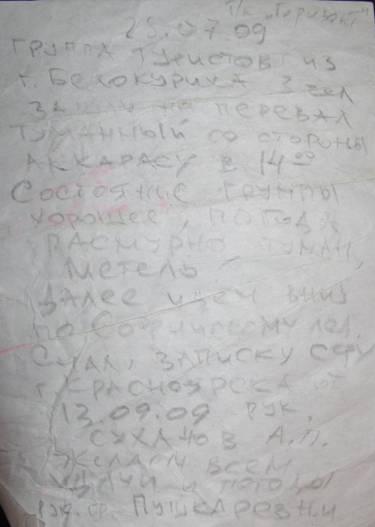 т/к "Горизонт"
25.07.09
Группа туристов из
г. Белокуриха 3 чел
зашли на перевал
Туманный со стороны
Аккарасу в 14 00
Состояние группы
хорошее, погода
пасмурно туман,
метель
далее идем вниз
по Софийскому лед.
Снял, записку СФУ
г. Красноярска от
13.09.09 рук.
Суханов А.П.
Желаем всем
удачи и погоды
рук. гр. Пушкарев Н.И